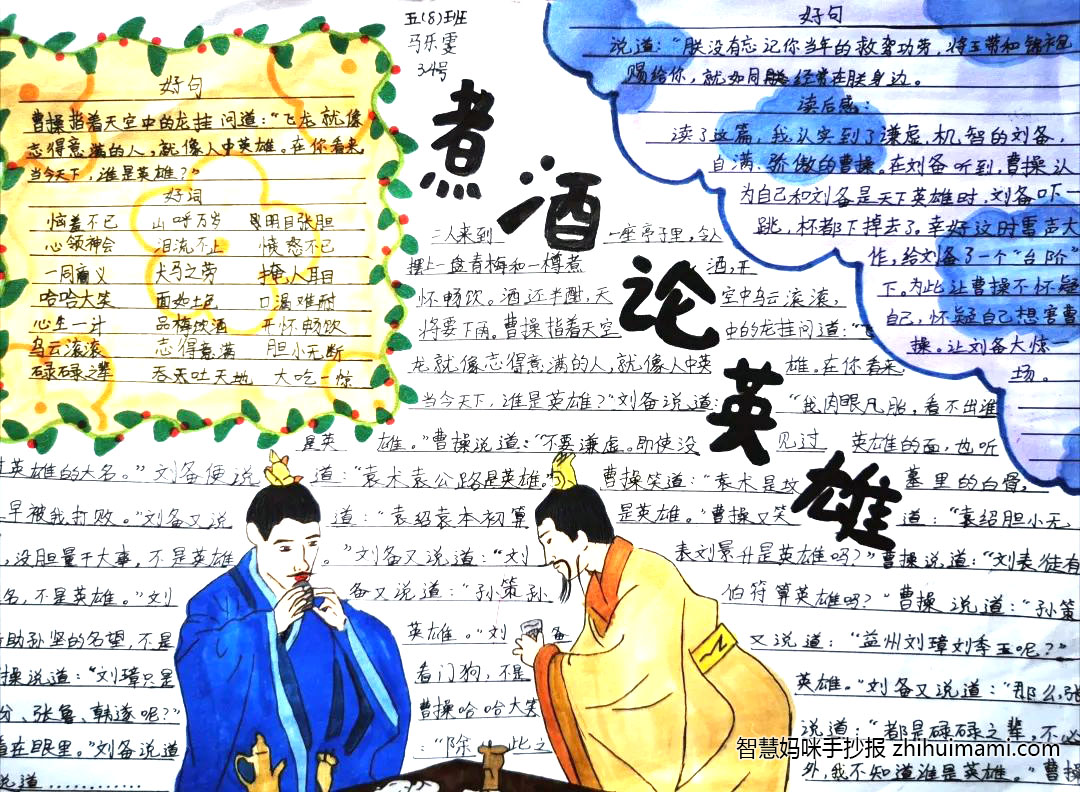 五(8)班
马乐雯
34号
煮酒论英雄
好句
曹操指着天空中的龙挂问道：“飞龙就像
志得意满的人，就像人中英雄。在你看来，
当今天下，谁是英雄？”
好词
恼羞不已 山呼万岁 明目张胆
心领神会 泪流不止 愤怒不已
一同商义 犬马之劳 掩人耳目
哈哈大笑 面如土色 口渴难耐
心生一计 品梅饮酒 开怀畅饮
乌云滚滚 志得意满 胆小无断
碌碌之辈 吞天吐地 大吃一惊
好句
说道：“朕没有忘记你当年的救驾功劳，将玉带和锦袍
赐给你，就如同朕经常在朕身边。
读后感：
读了这篇，我认实到了谦虚、机智的刘备，
自满、骄傲的曹操。在刘备听到，曹操认
为自己和刘备是天下英雄时，刘备吓一
跳，杯都下掉去了。幸好这时雷声大
作，给刘备了一个“台阶”
下。为此让曹操不怀疑
自己，怀疑自己想害曹
操。让刘备大惊一
场。
二人来到 一座亭子里，令人
摆上一盘青梅和一樽煮 酒，开
怀畅饮。酒还半酣，天 空中乌云滚滚，
将要下雨。曹操指着天空 中的龙挂问道：“飞
龙就像志得意满的人，就像人中英 雄。在你看来，
当今天下，谁是英雄？”刘备说道： “我肉眼凡胎，看不出谁
是英 雄。”曹操说道：“不要谦虚。即使没 见过 英雄的面，也听
过英雄的大名。”刘备便说 道：“袁术袁公路是英雄。” 曹操笑道：“袁术是坟 墓里的白骨，
早被我打败。”刘备又说 道：“袁绍袁本初算 是英雄。”曹操又笑 道：“袁绍胆小无
，没胆量干大事，不是英雄 。”刘备又说道：“刘 表刘景升是英雄吗？”曹操说道：“刘表徒有
名，不是英雄。”刘 备又说道：“孙策孙 伯符算英雄吗？”曹操说道：“孙策
助孙坚的名望，不是 英雄。”刘 备 又说道：“益州刘璋刘季玉呢？”
操说道：“刘璋只是 看门狗，不是 英雄。”刘备又说道：“那么，张
、张鲁、韩遂呢？” 曹操哈哈大笑 说道：“都是碌碌之辈，不必
在眼里。”刘备说道 ：“除 此之 外，我不知道谁是英雄。”曹操
说道…………
智慧妈咪手抄报 zhihuimami.com